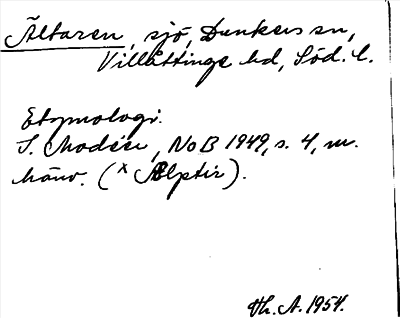 Ältaren, sjö, Dunkers sn,
Villåttinge hd, Söd. l.
Etymologi.
I. Modéer, NoB 1949, s. 4, m.
hänv. (x Alptir).
Th. A. 1954.